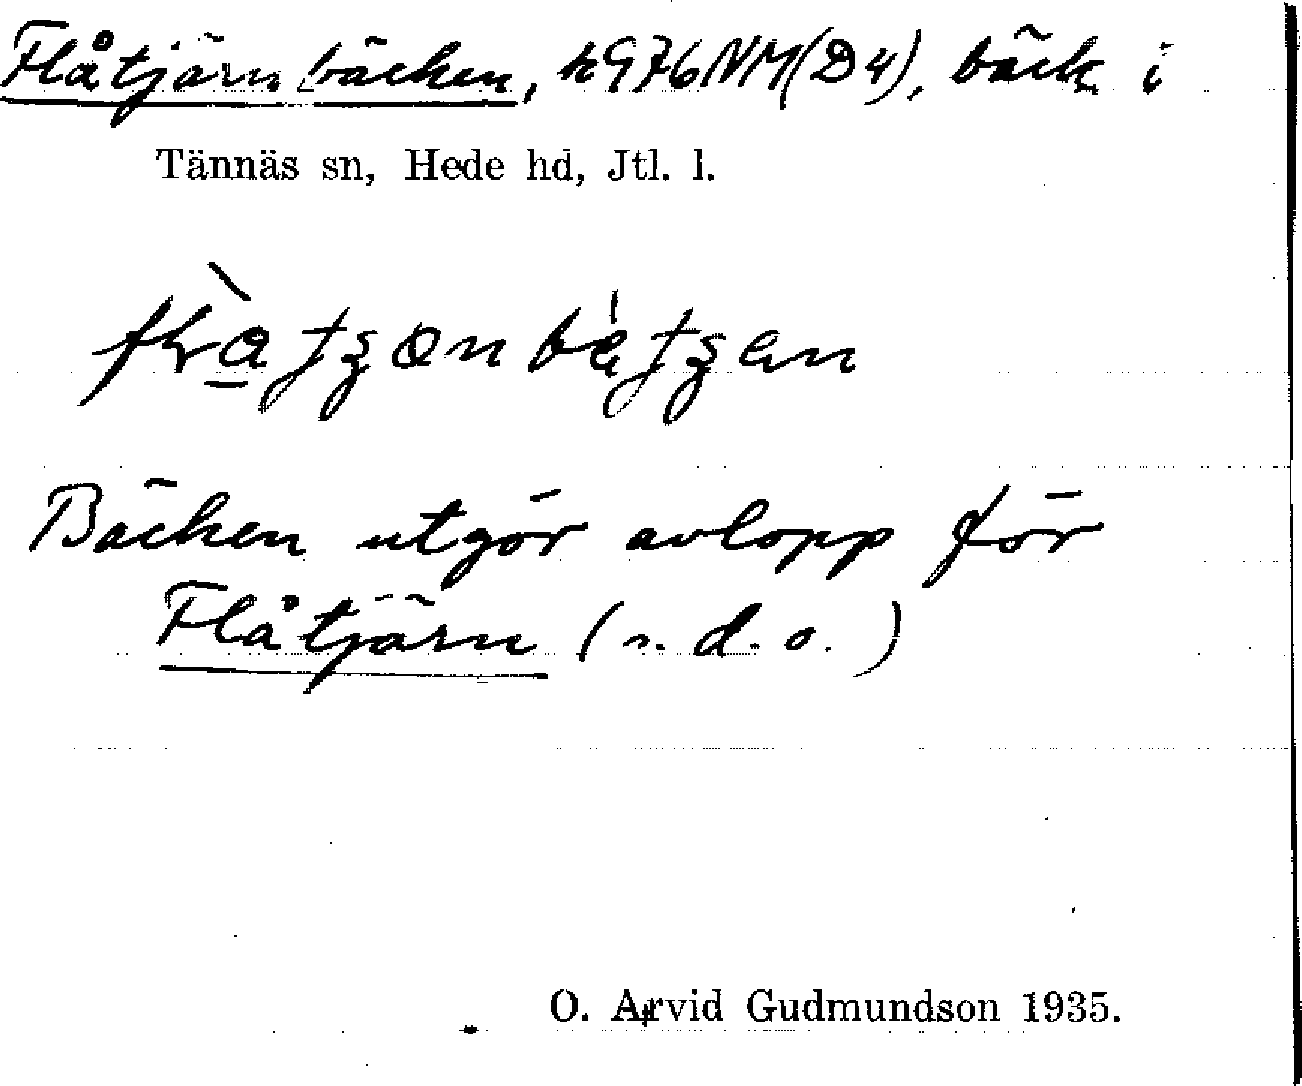 Flåtjärnbäcken, k976NM(D4), bäck i
Tännäs sn, Hede hd, Jtl. l.
Bäcken utgör avlopp för
Flåtjärn (s. d. o.)
O. Arvid Gudmundson 1935.